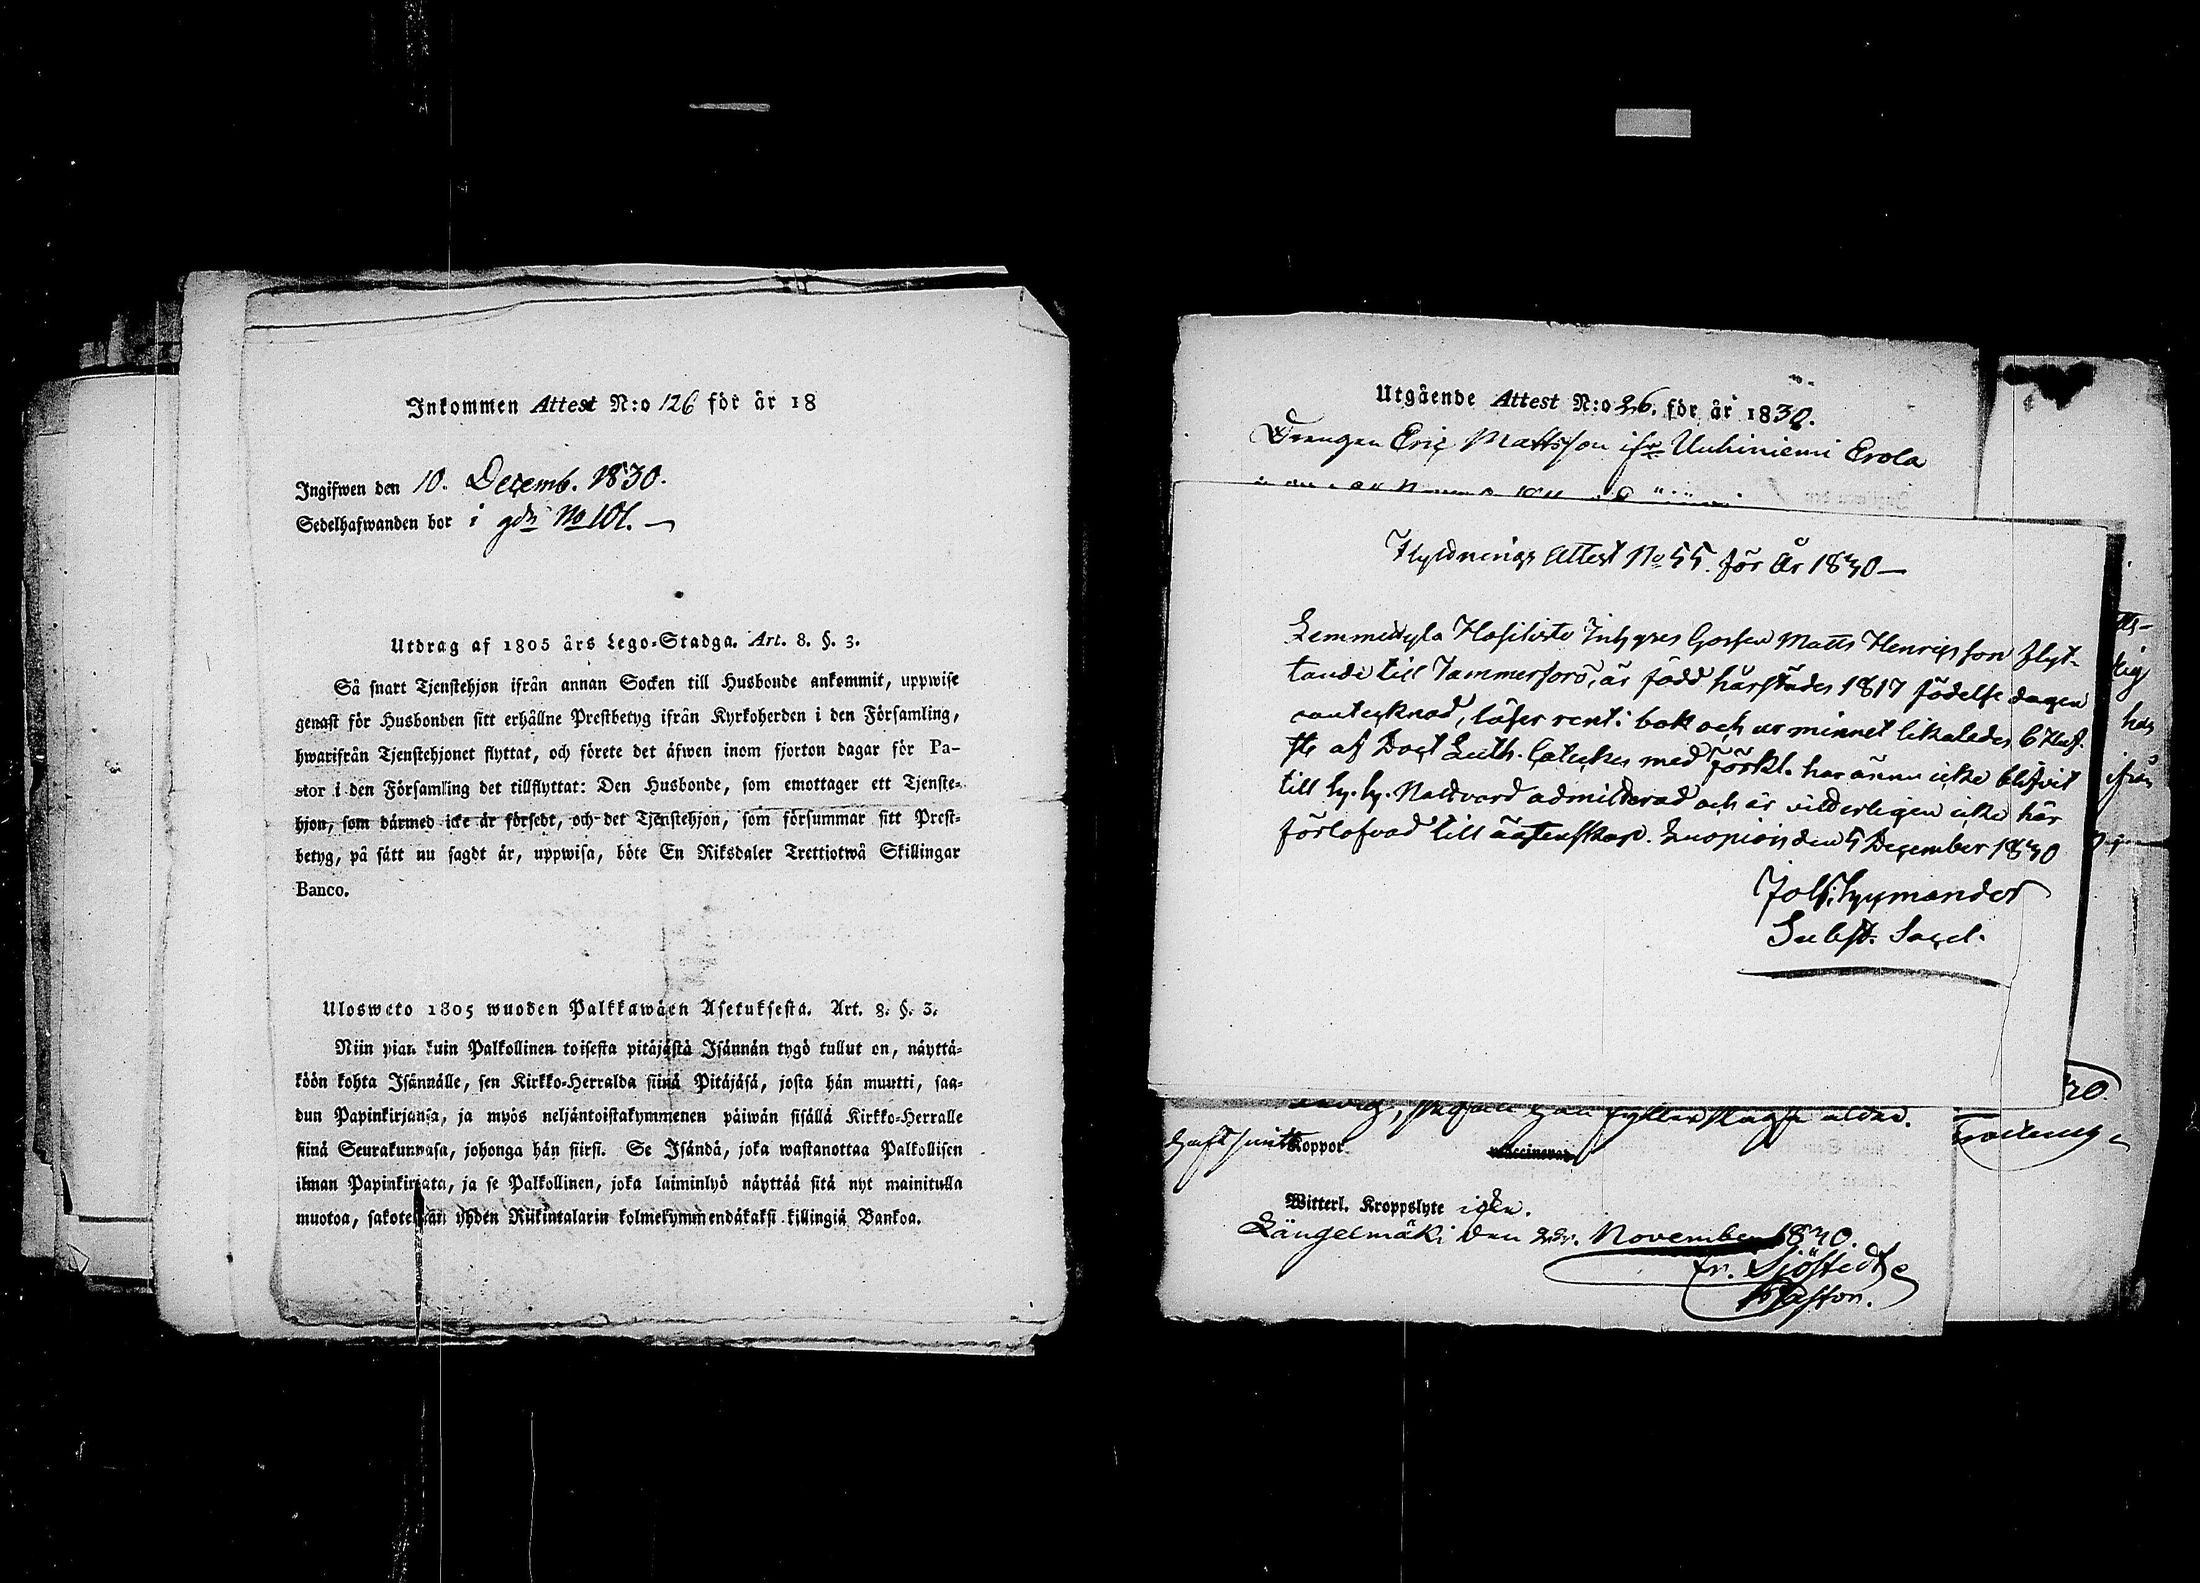 Inkommen Attest N:o 126 för år 18
Ingifwen den 10. Decemb. 1830.
Sedelhafwanden bor i gdn No 101.
Utdrag af 1805 års Lego-Stadga. Art. 8. §. 3.
Så snart Tjenstehjon ifrån annan Socken till Husbonde ankommit, uppwise
genast för Husbonden sitt erhållne Prestbetyg ifrån Kyrkoherden i den Församling,
hwarifrån Tjenstehjonet flyttat, och förete det äfwen inom fjorton dagar för Pa-
stor i den Församling det tillflyttat: Den Husbonde, som emottager ett Tjenste-
hjon, som därmed icke är försedt, och det Tjenstehjon, som försummar sitt Prest-
betyg, på sätt nu sagdt är, uppwisa, böte En Riksdaler Trettiotwå Skillingar
Banco.
Ulosweto 1805 wuoden Palkkawäen Asetuksesta. Art. 8. §. 3.
Niin pian kuin Palkollinen toisesta pitäjästä Isännän tygö tullut on, näyttä-
köön kohta Isännälle, sen Kirkko-Herralda siinä Pitäjäsä, josta hän muutti, saa-
dun Papinkirjansa, ja myös neljäntoistakymmenen päiwän sisällä Kirkko-Herralle
siinä Seurakunnasa, johonga hän siirsi. Se Isändä, joka wastanottaa Palkollisen
ilman Papinkirjata, ja se Palkollinen, joka laiminlyö näyttää sitä nyt mainitulla
muotoa, sakotetaan yhden Riikintalarin kolmekymmendäkaksi killingiä Bankoa.
Utgående Attest N:o 26. för år 1830.
Drengen Eric Mattsson ifr Uuhiniemi Erola
Flyttnings Attest No 55. för År 1830
Lemmettyla Inhyses Gossen Matts Henricsson flyt-
tande till Tammerfors, är född härstädes 1817 födelse dagen
oantecknad, läser rent i bok och ur minnet likaledes 6 Huf.
st. af Doct Luth. Cateches med förkl. har ännu icke blifvit
till h. h. Nattvard admitterad och är viderligen icke här
förlofvad till äctenskap. Luopiois den 5 December 1830
Joh. Hymander
Subst. Sacel.
30.
haft smitt Koppor
Witterl. Kroppslyte icke.
Längelmäki den 22. November 1830.
Fr. Sjöstedt
Pastor.